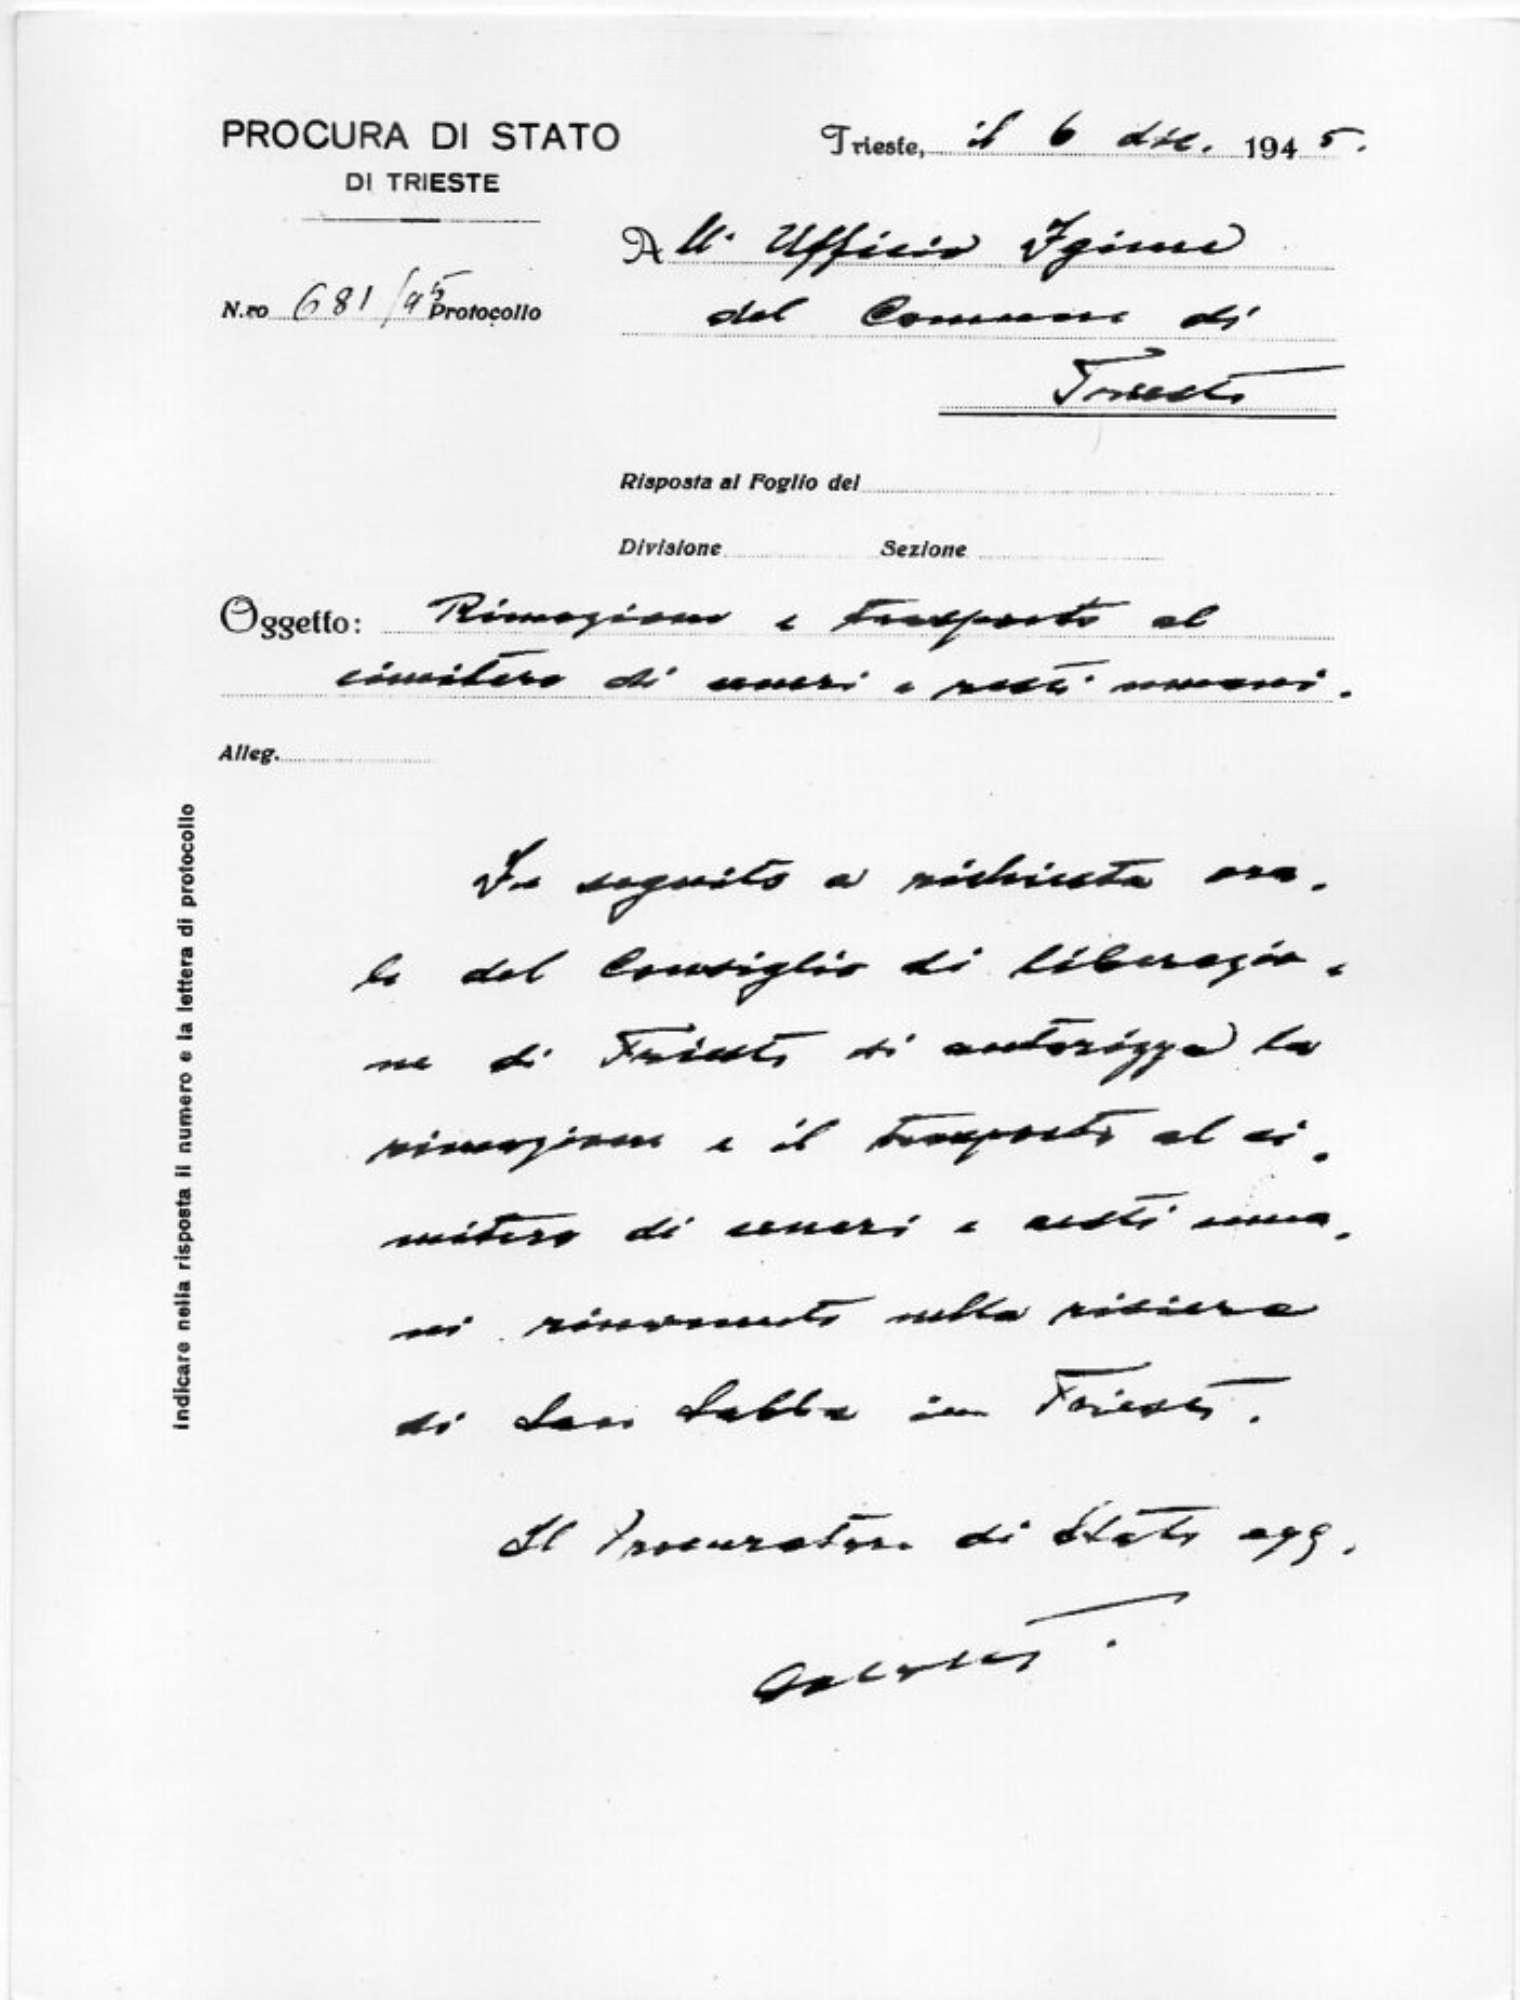 PROCURA DI STATO
DI TRIESTE
Trieste, il 6 dic. 1945.
N.ro 681/45 Protocollo
All' Ufficio Igiene
del Comune di
Trieste
Risposta al Foglio del
Divisione Sezione
Oggetto: Rimozione e trasporto al
cimitero di ceneri e resti umani.
Alleg.
Indicare nella risposta il numero e la lettera di protocollo
In seguito a richiesta ora-
le del Consiglio di liberazio-
ne di Trieste si autorizza la
rimozione e il trasporto al ci-
mitero di ceneri e resti uma-
ni rinvenuti nella risiera
di San Sabba in Trieste.
Il Procuratore di Stato agg.